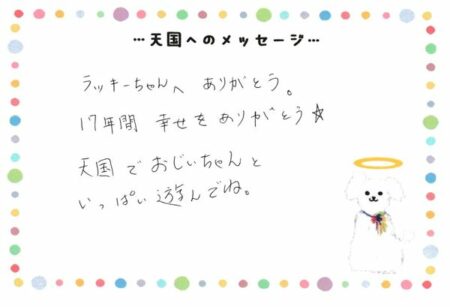 …天国へのメッセージ…
ラッキーちゃんへ ありがとう。
17年間 幸せを ありがとう☆
天国で おじいちゃんと
いっぱい 遊んでね。